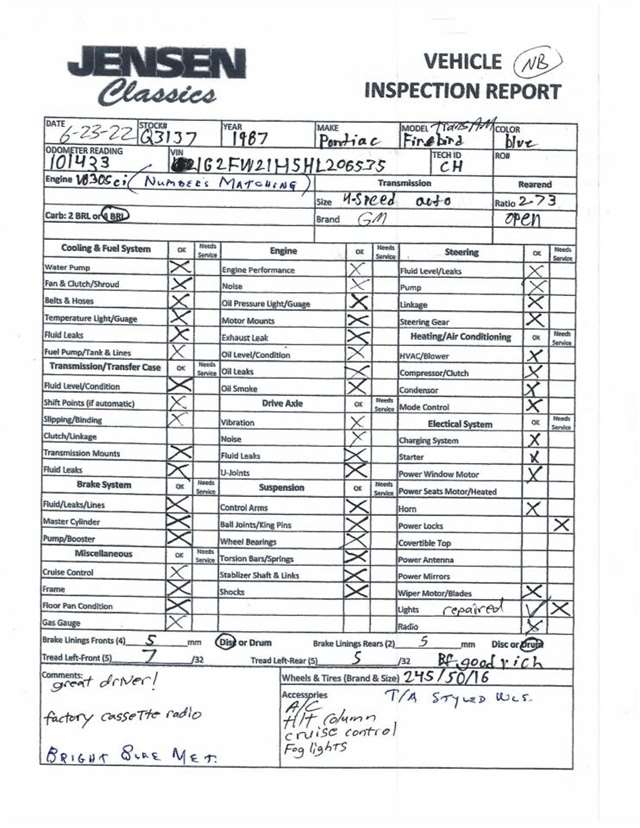 JENSEN
Classics
VEHICLE NB
INSPECTION REPORT
DATE 6-23-22 STOCK# Q3137 YEAR 1987 MAKE Pontiac MODEL Trans AM Firebird COLOR blue
ODOMETER READING 101433 VIN 1G2FW21H5HL206535 TECH ID CH RO#
Engine V8 305ci (NUMBERS MATCHING) Transmission Rearend
Size 4-speed auto Ratio 2-73
Carb: 2 BRL or 4 BRL Brand GM open
Cooling & Fuel System OK Needs Service Engine OK Needs Service Steering OK Needs Service
Water Pump X Engine Performance X Fluid Level/Leaks X
Fan & Clutch/Shroud X Noise X Pump X
Belts & Hoses X Oil Pressure Light/Guage X Linkage X
Temperature Light/Guage X Motor Mounts X Steering Gear X
Fluid Leaks X Exhaust Leak X Heating/Air Conditioning OK Needs Service
Fuel Pump/Tank & Lines X Oil Level/Condition X HVAC/Blower X
Transmission/Transfer Case OK Needs Service Oil Leaks X Compressor/Clutch X
Fluid Level/Condition X Oil Smoke X Condensor X
Shift Points (if automatic) X Drive Axle OK Needs Service Mode Control X
Slipping/Binding X Vibration X Electical System OK Needs Service
Clutch/Linkage Noise X Charging System X
Transmission Mounts X Fluid Leaks X Starter X
Fluid Leaks X U-Joints X Power Window Motor X
Brake System OK Needs Service Suspension OK Needs Service Power Seats Motor/Heated
Fluid/Leaks/Lines X Control Arms X Horn X
Master Cylinder X Ball Joints/King Pins X Power Locks X
Pump/Booster X Wheel Bearings X Covertible Top
Miscellaneous OK Needs Service Torsion Bars/Springs X Power Antenna
Cruise Control X Stablizer Shaft & Links X Power Mirrors
Frame X Shocks X Wiper Motor/Blades X
Floor Pan Condition X Lights repaired ✓ X
Gas Gauge X Radio X
Brake Linings Fronts (4) 5 mm Disc or Drum Brake Linings Rears (2) 5 mm Disc or Drum
Tread Left-Front (5) 7 /32 Tread Left-Rear (5) 5 /32 BF goodrich
Comments: Wheels & Tires (Brand & Size) 245/50/16
great driver! Accessories T/A STYLED WLS.
A/C
factory cassette radio tilt column
cruise control
Fog lights
BRIGHT BLUE MET.